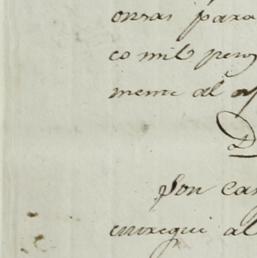 onzas para
co mil pesos
mente al
D
Son ca
entregué al